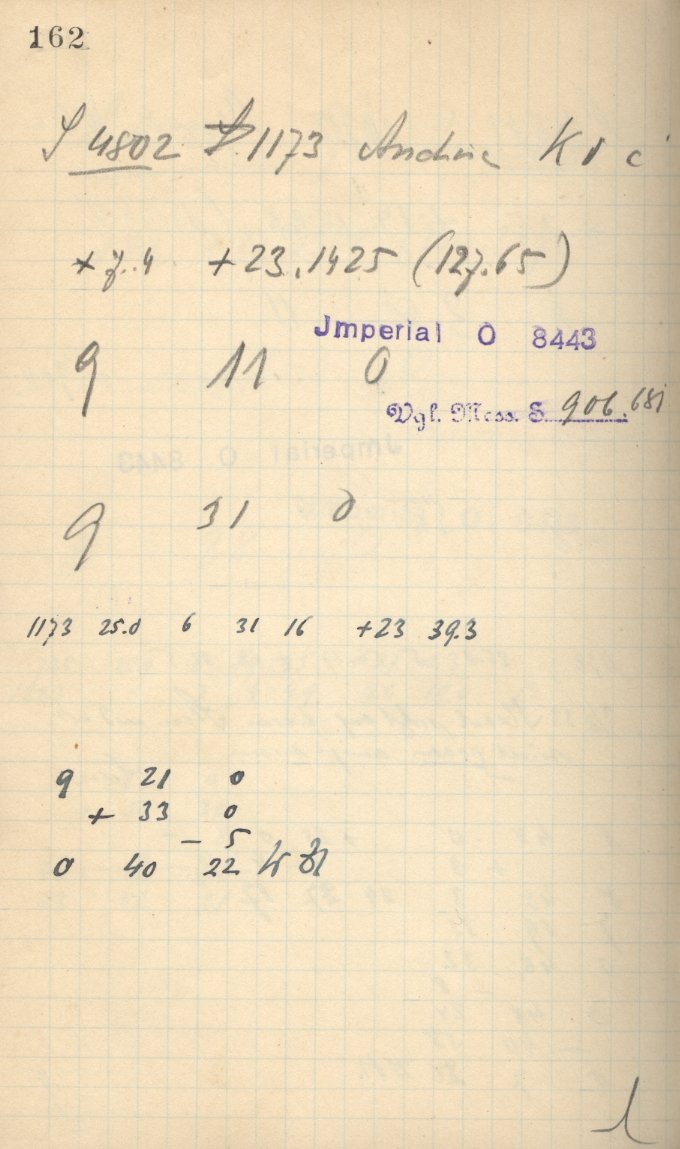 162
S 4802 1173 K
+ 7.4 +23.1425 (127.65)
Jmperial O 8443
9 11 0
Vgl. Mess. S. 906.681
9 31 0
1173 25.0 6 31 16 +23 39.3
9 21 0
+ 33 0
- 5
0 40 22